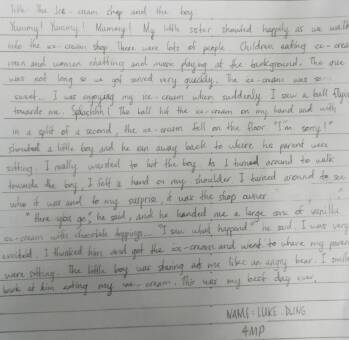 Title The Ice-cream shop and the boy
Yummy! Yummy! Mummy! My little sister shouted happily as we walk
into the ice-cream shop There were lots of people. Children eating ice-cream
men and women chatting and music playing at the background. The que
was not long so we got served very quickly. The ice-cream was so
sweet. I was enjoying my ice-cream when suddenly I saw a ball
towards me. The ball hit the ice-cream on my hand and with
in a split of a second, the ice-cream fell on the floor "I'm sorry!"
shouted a little boy and he ran away back to where his parent were
sitting. I really wanted to hit the boy As I turned around to walk
towards the boy, I felt a hand on my shoulder I turned around to see
who it was and to my surprise, it was the shop owner
"There you go," he said, and he handed me a large cone of vanilla
ice-cream with chocolate toppings. "I saw what happend" he said. I was very
excited. I thanked him and got the ice-cream and went to where my parent
were sitting. The little boy was staring at me like an angry bear. I smile
back at him eating my ice-cream. This was my best day ever.
NAME: LUKE DLING
4MP